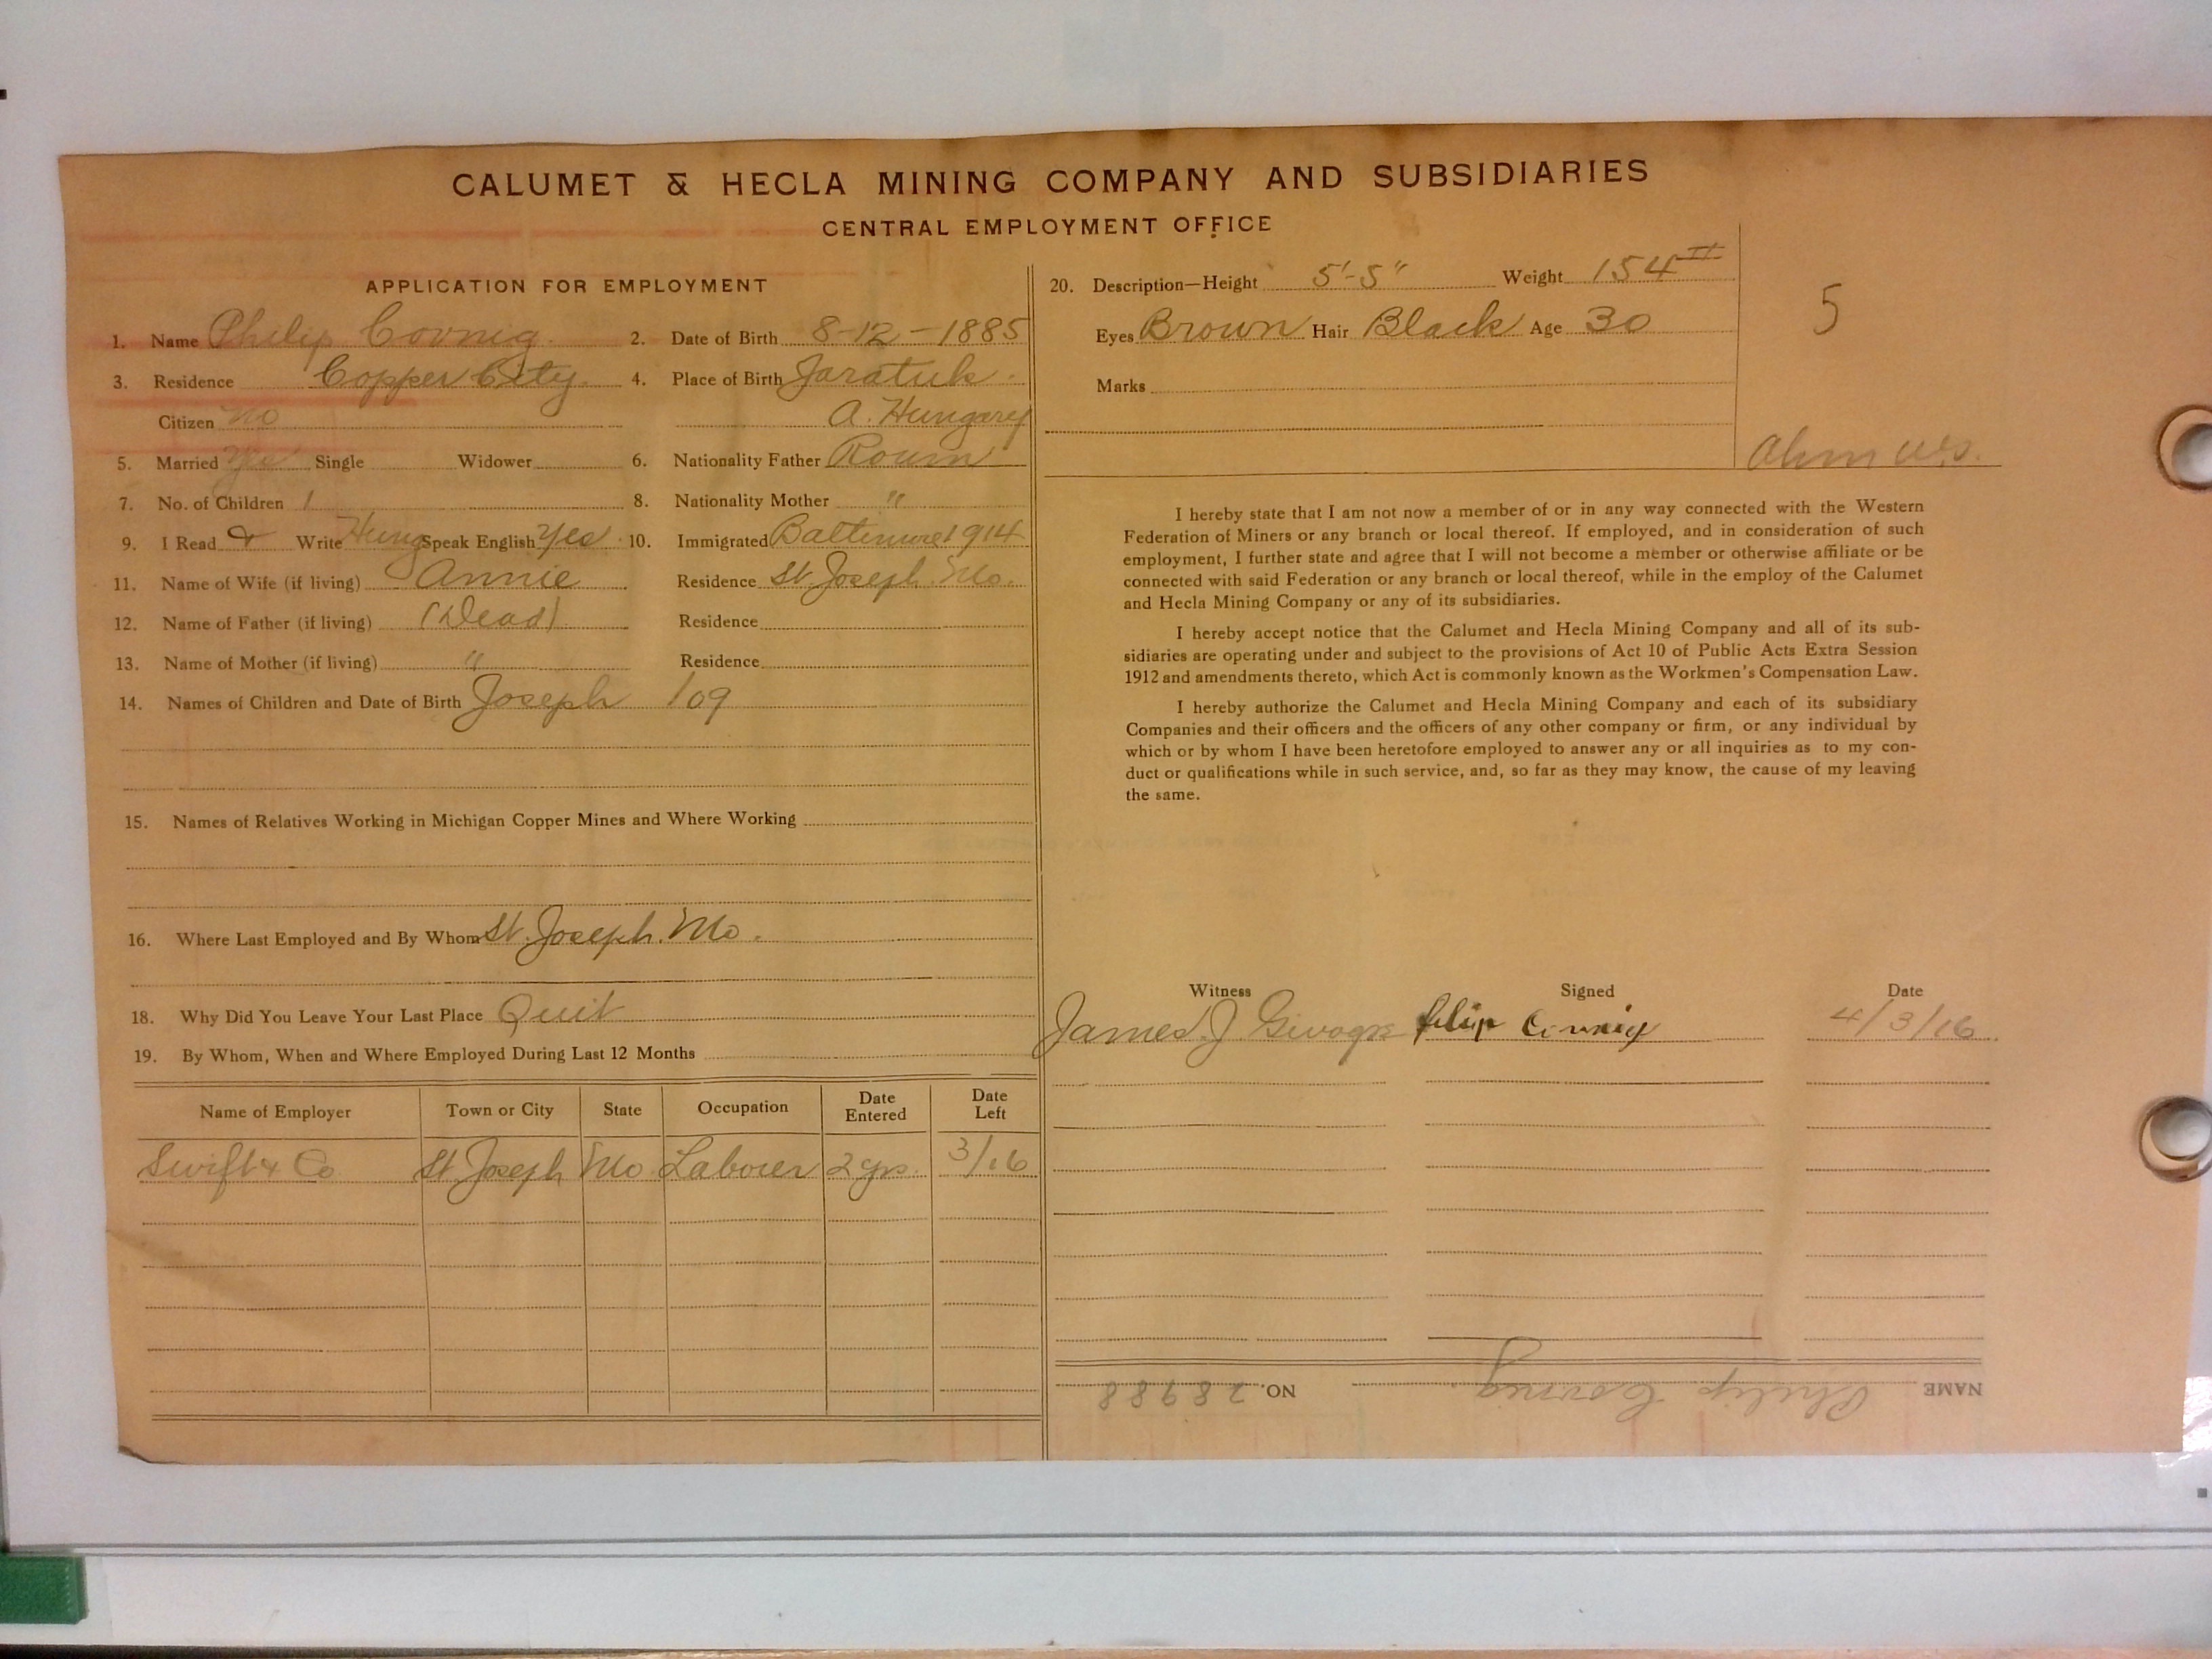 CALUMET & HECLA MINING COMPANY AND SUBSIDIARIES
CENTRAL EMPLOYMENT OFFICE
APPLICATION FOR EMPLOYMENT
1. Name Philip Covnig 2. Date of Birth 8-12-1885
3. Residence Copper City. 4. Place of Birth Jaratuk.
Citizen No A. Hungary
5. Married Yes Single Widower 6. Nationality Father Roum
7. No. of Children 1 8. Nationality Mother "
9. I Read & Write Hung Speak English Yes 10. Immigrated Baltimore 1914
11. Name of Wife (if living) Annie Residence St. Joseph. Mo.
12. Name of Father (if living) (Dead) Residence
13. Name of Mother (if living) " Residence
14. Names of Children and Date of Birth Joseph /09
15. Names of Relatives Working in Michigan Copper Mines and Where Working
16. Where Last Employed and By Whom St. Joseph. Mo.
18. Why Did You Leave Your Last Place Quit
19. By Whom, When and Where Employed During Last 12 Months
Name of Employer Town or City State Occupation Date Entered Date Left
Swift & Co St Joseph Mo Laborer 2 yrs. 3/16
20. Description—Height 5'-5" Weight 154
Eyes Brown Hair Black Age 30
Marks
5
Ahm
I hereby state that I am not now a member of or in any way connected with the Western
Federation of Miners or any branch or local thereof. If employed, and in consideration of such
employment, I further state and agree that I will not become a member or otherwise affiliate or be
connected with said Federation or any branch or local thereof, while in the employ of the Calumet
and Hecla Mining Company or any of its subsidiaries.
I hereby accept notice that the Calumet and Hecla Mining Company and all of its sub-
sidiaries are operating under and subject to the provisions of Act 10 of Public Acts Extra Session
1912 and amendments thereto, which Act is commonly known as the Workmen's Compensation Law.
I hereby authorize the Calumet and Hecla Mining Company and each of its subsidiary
Companies and their officers and the officers of any other company or firm, or any individual by
which or by whom I have been heretofore employed to answer any or all inquiries as to my con-
duct or qualifications while in such service, and, so far as they may know, the cause of my leaving
the same.
Witness Signed Date
James J filip Covnig 4/3/16
NAME Philip Covnig. NO. 28988